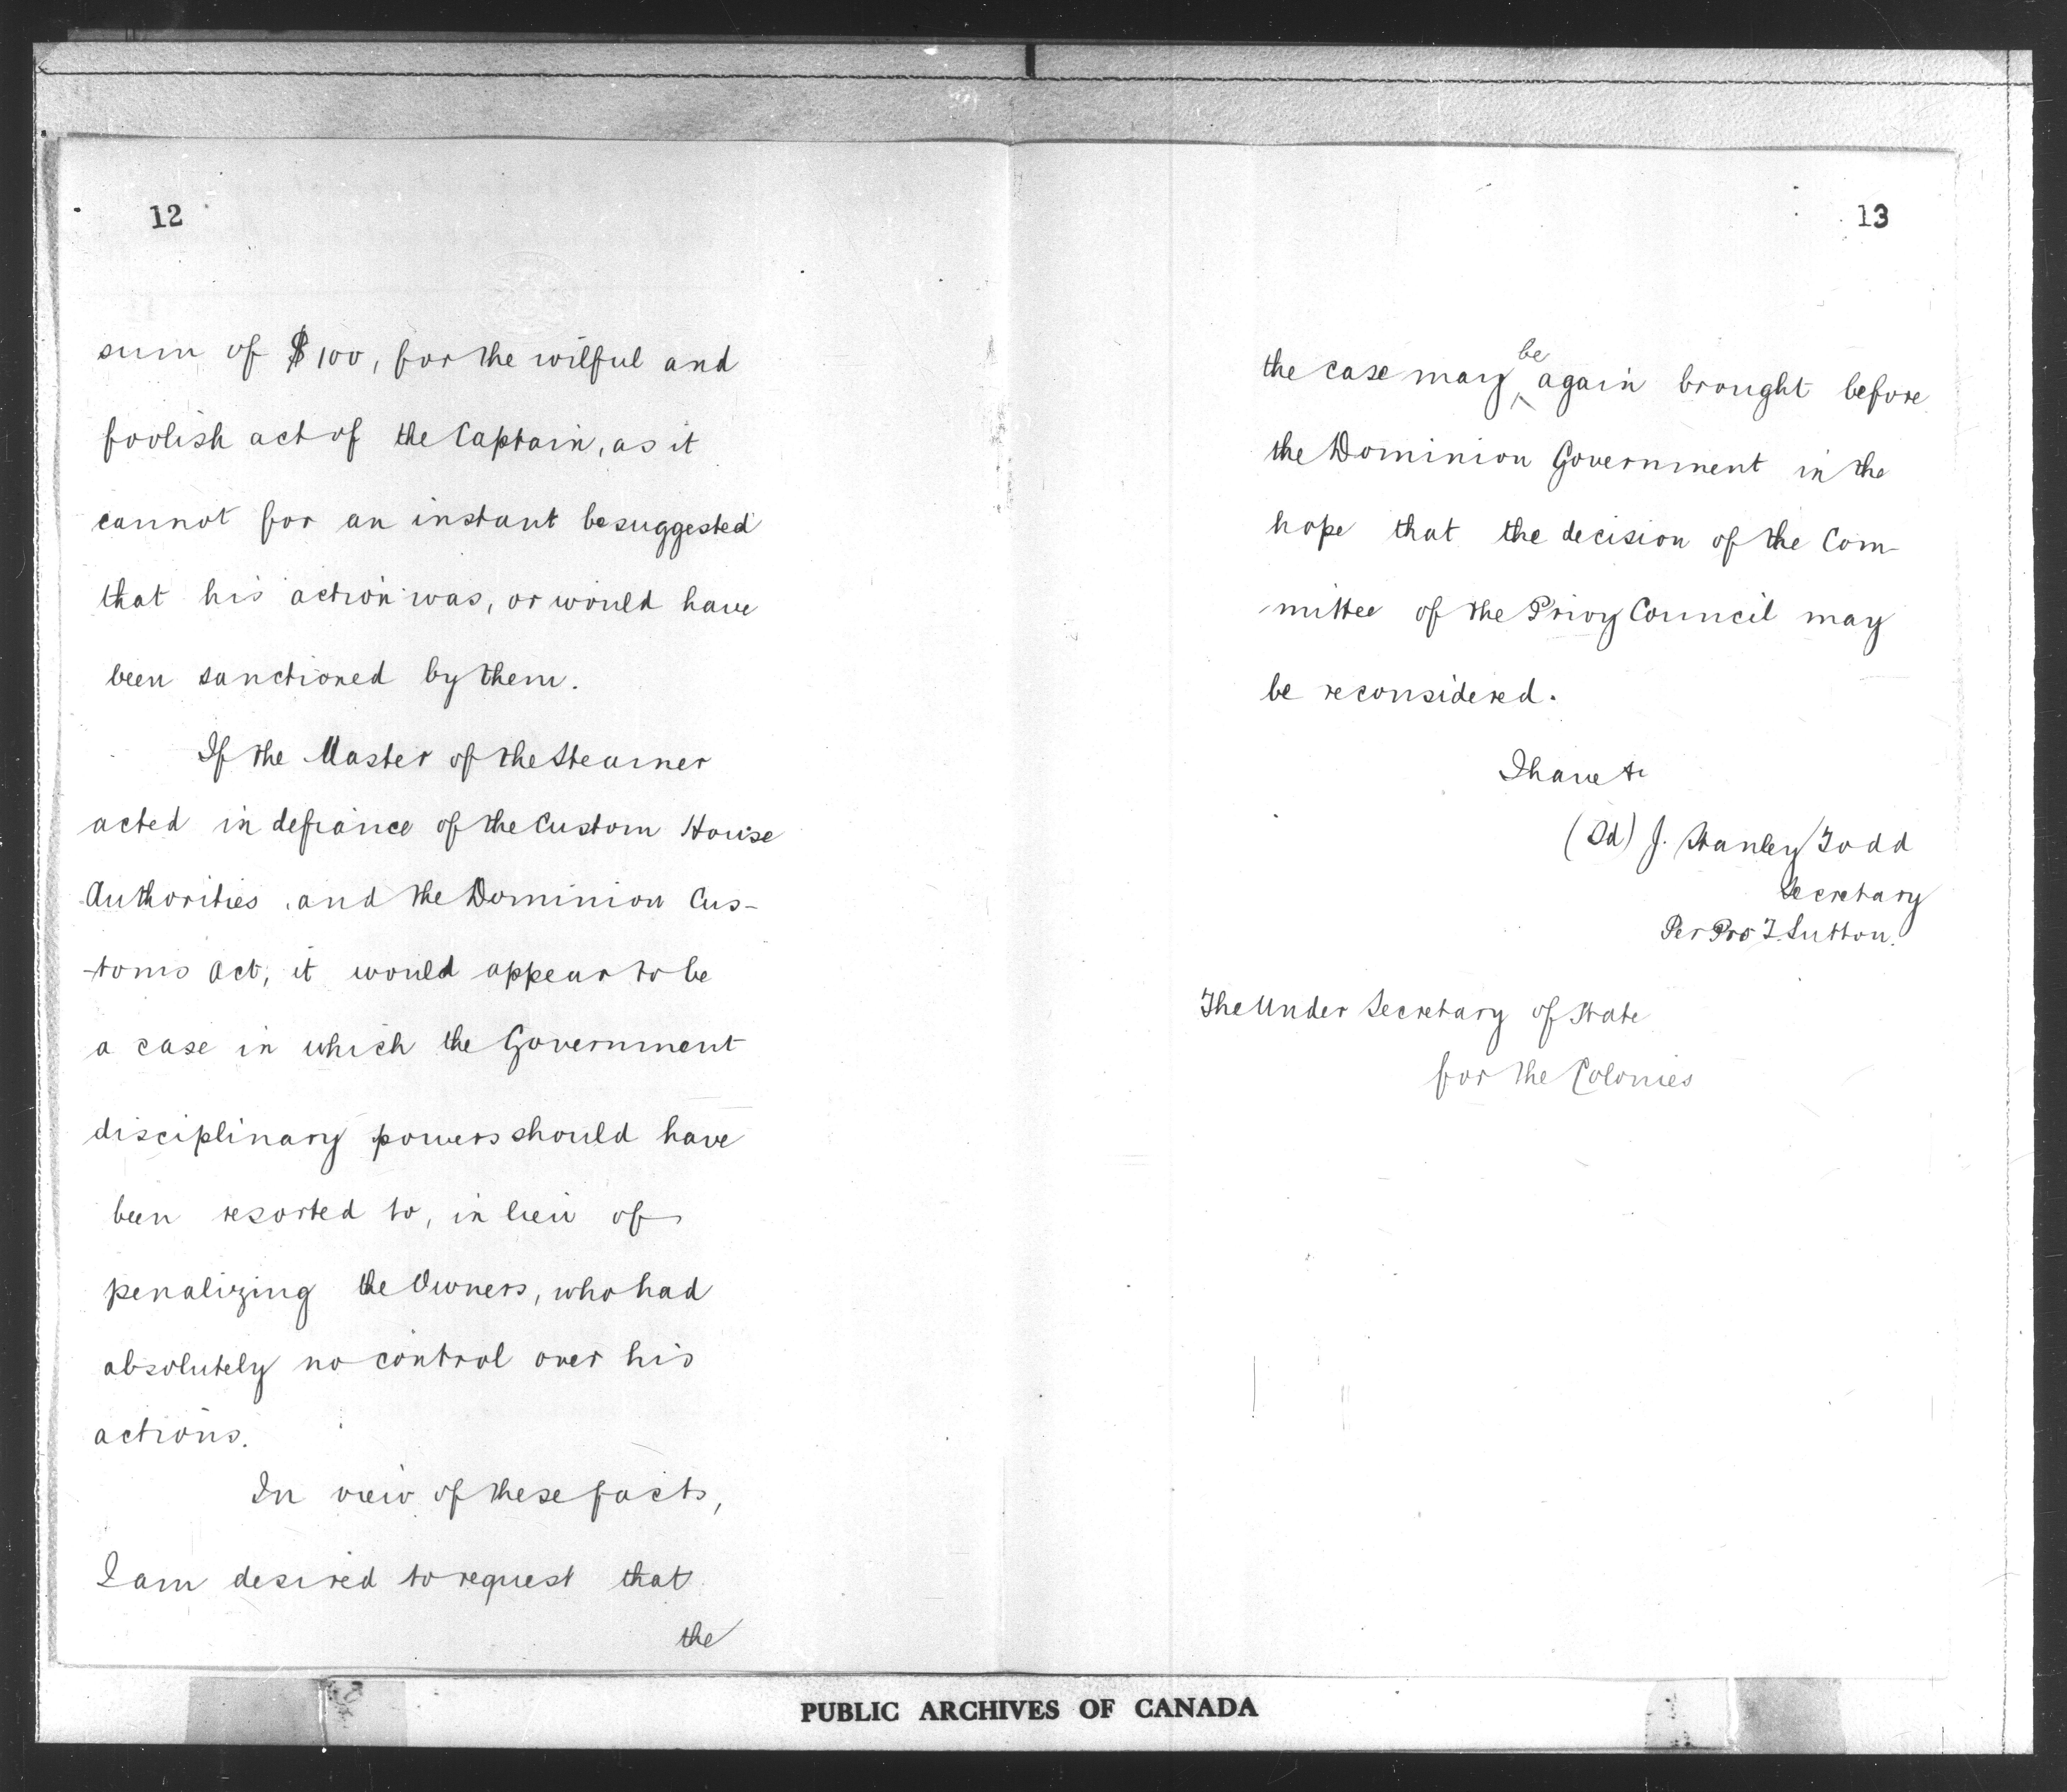 12
sum of $100, for the wilful and
foolish act of the Captain, as it
cannot for an instant be suggested
that his action was, or would have
been sanctioned by them.
If the Master of the Steamer
acted in defiance of the Custom House
Authorities, and the Dominion Cus-
-toms Act, it would appear to be
a case in which the Government
disciplinary powers should have
been resorted to, in lieu of
penalizing the Owners, who had
absolutely no control over his
actions.
In view of these facts,
I am desired to request that
the
13
the case may be again brought before
the Dominion Government in the
hope that the decision of the Com-
mittee of the Privy Council may
be reconsidered.
I have &c
(Sd) J. Stanley Todd
Secretary
Per Pro T. Sutton.
The Under Secretary of State
for the Colonies
PUBLIC ARCHIVES OF CANADA